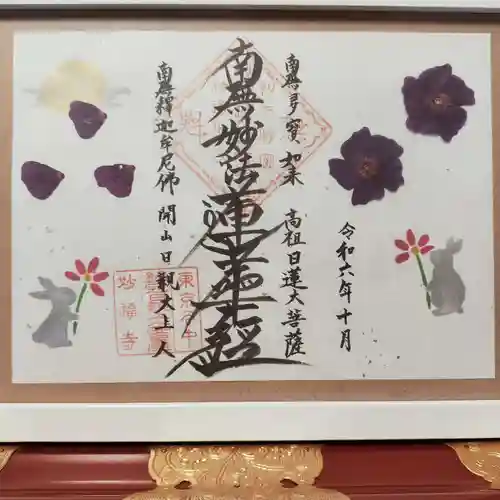 令和六年十月
南無多寳如来 高祖日蓮大菩薩
南無妙法蓮華經
南無釋迦牟尼佛 開山日親大上人
妙福寺